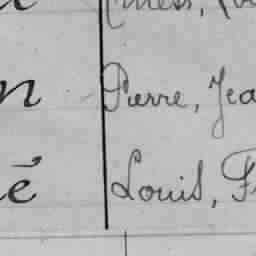 n Pierre, Jea
é Louis, F